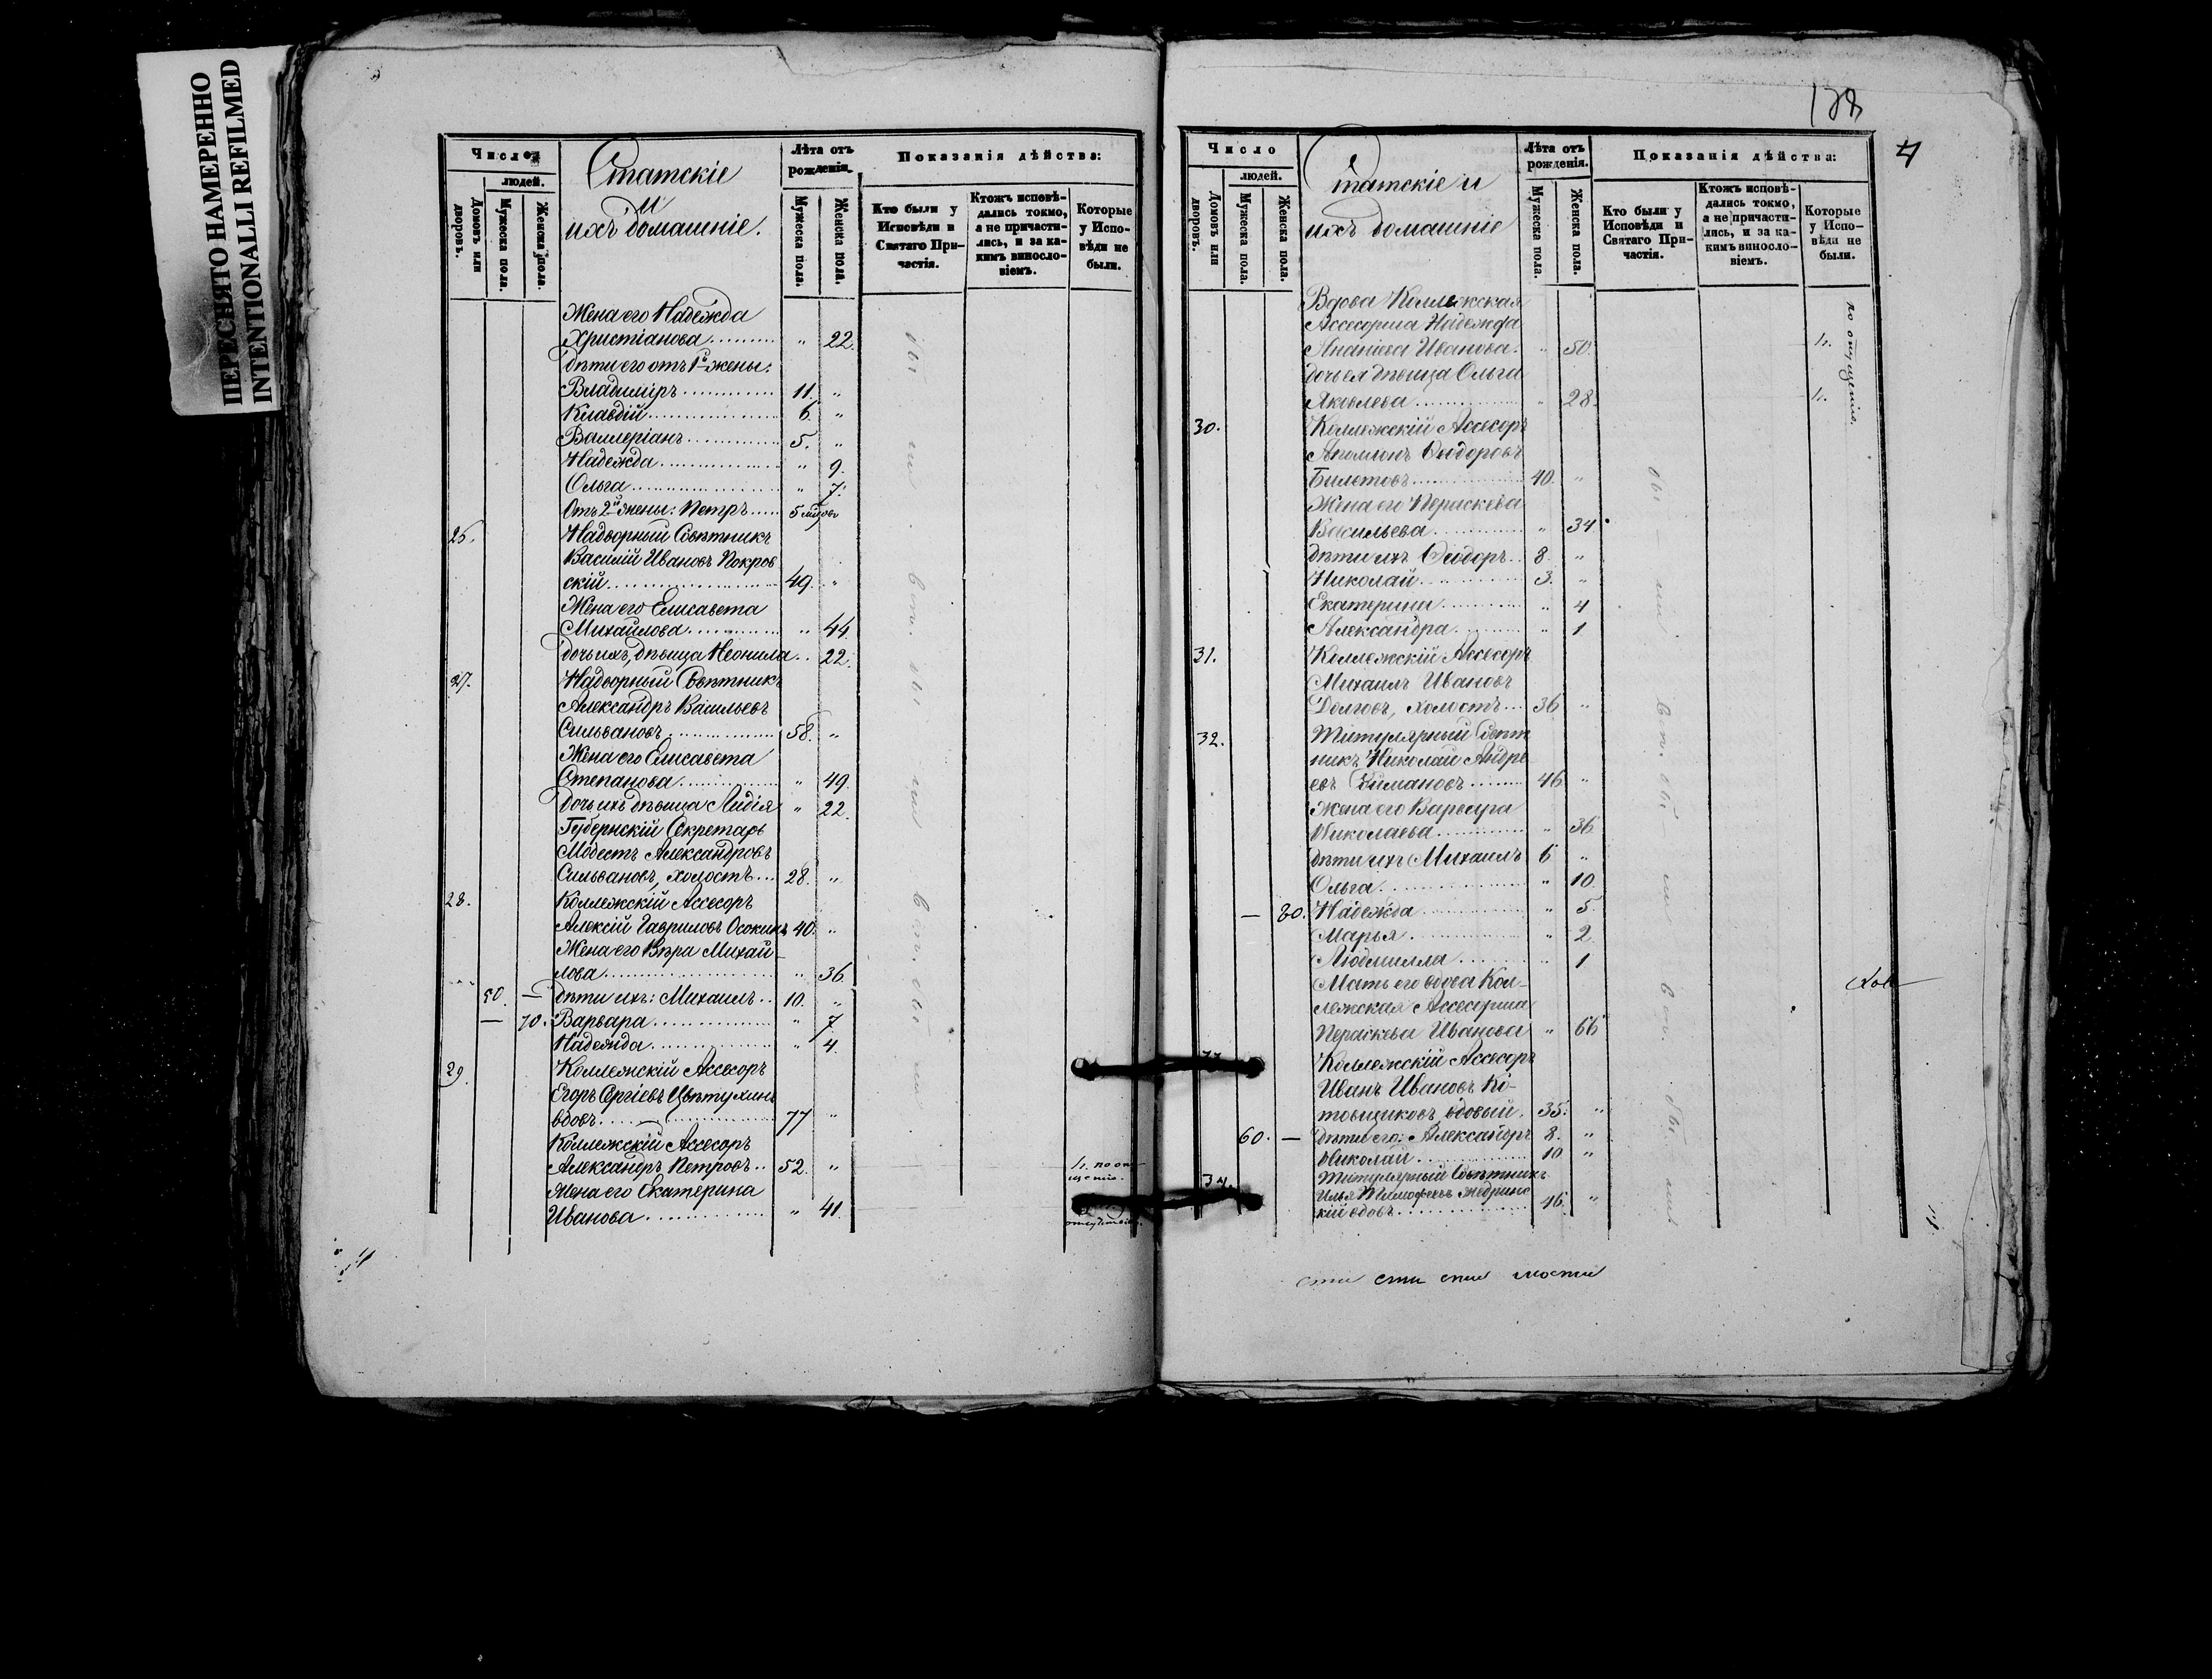 ПЕРЕСНЯТО НАМЕРЕННО
INTENTIONALLI REFILMED
Число
людей.
Домовъ или дворовъ.
Мужеска пола.
Женска пола.
Статскіе
и
ихъ домашніе.
Лѣта отъ рожденія.
Мужеска пола.
Женска пола.
Показанія дѣйства:
Кто были у Исповѣди и Святаго Причастія.
Ктожъ исповѣдались токмо, а не причастились, и за какимъ винословіемъ.
Которые у Исповѣди не были.
Жена его Надежда
Христіанова " 22.
Дѣти его отъ 1й жены:
Владиміръ 11. "
Клавдій 6. "
Валлеріанъ 5. "
Надежда " 9.
Ольга " 7.
Отъ 2й жены: Петръ 5 мѣсяц.
26. Надворный Совѣтникъ
Василій Ивановъ Покров
скій 49. "
Жена его Елисавета
Михайлова " 44.
Дочь ихъ, дѣвица Неонила 22.
27. Надворный Совѣтникъ
Александръ Васильевъ
Сильвановъ 58. "
Жена его Елисавета
Степанова " 49.
Дочь ихъ дѣвица Лидія " 22.
Губернскій Секретарь
Модестъ Александровъ
Сильвановъ, холостъ 28. "
28. Коллежскій Ассесоръ
Алексій Гавриловъ Осокинъ 40. "
Жена его Вѣра Михай-
лова " 36.
50. — Дѣти ихъ: Михаилъ 10. "
— 70. Варвара " 7
Надежда " 4.
29. Коллежскій Ассесоръ
Егоръ Сергіевъ Цвѣтухинъ
вдовъ 77 "
Коллежскій Ассесоръ
Александръ Петровъ 52. "
Жена его Екатерина
Иванова " 41.
138
4
Число
людей.
Домовъ или дворовъ.
Мужеска пола.
Женска пола.
Статскіе и
ихъ домашніе
Лѣта отъ рожденія.
Мужеска пола.
Женска пола.
Показанія дѣйства:
Кто были у Исповѣди и Святаго Причастія.
Ктожъ исповѣдались токмо, а не причастились, и за какимъ винословіемъ.
Которые у Исповѣди не были.
Вдова Коллежская
Ассесорша Надежда
Ананіева Иванова " 50. н.
Дочь ея дѣвица Ольга
Яковлева " 28. н.
по опущенію.
30. Коллежскій Ассесоръ
Ѳеодоровъ
Билетовъ 40. "
Жена его Параскева
Васильева " 34
Дѣти ихъ Ѳеодоръ 8. "
Николай 3. "
Екатерина " 4
Александра " 1
31. Коллежскій Ассесоръ
Михаилъ Ивановъ
Долговъ, холостъ 36 "
32. Титулярный Совѣт
никъ Николай Андре
евъ 46 "
Жена его Варвара
Николаева " 36
Дѣти ихъ Михаилъ 6 "
Ольга " 10.
— 80. Надежда " 5.
Марья " 2
Людмилла " 1
Мать его вдова Кол-
лежская Ассесорша
Параскева Иванова " 66
Коллежскій Ассесоръ
Иванъ Ивановъ Ко-
товщиковъ вдовый. 35. "
60. — Дѣти его: Александръ 8. "
Николай 10 "
34. Титулярный Совѣтникъ
Илья Тимофеевъ Жедрин
кій вдовъ 46. "